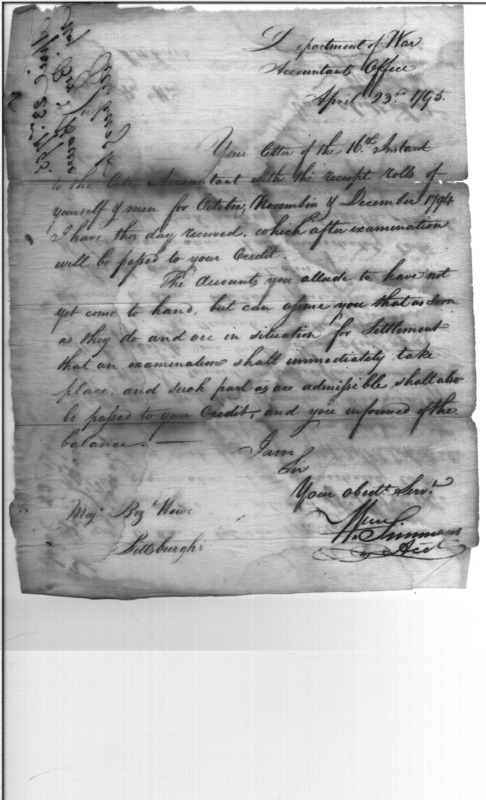 Department of War
Accountants Office
April 23d. 1795.
Your letter of the 16th Instant
to the Accountant with the receipt rolls of
yourself & men for October, November & December 1794
I have this day received, which after examination
will be passed to your Credit.
The Accounts you allude to have not
yet come to hand, but can assure you that as soon
as they do and are in situation for Settlement
that an examination shall immediately take
place; and such part as are admissible shall also
be passed to your Credit, and you informed of the
balance. —
I am
Sir
Your obedt. Servt.
Wm. Simmons
Acct
Majr. Howe
Pittsburgh